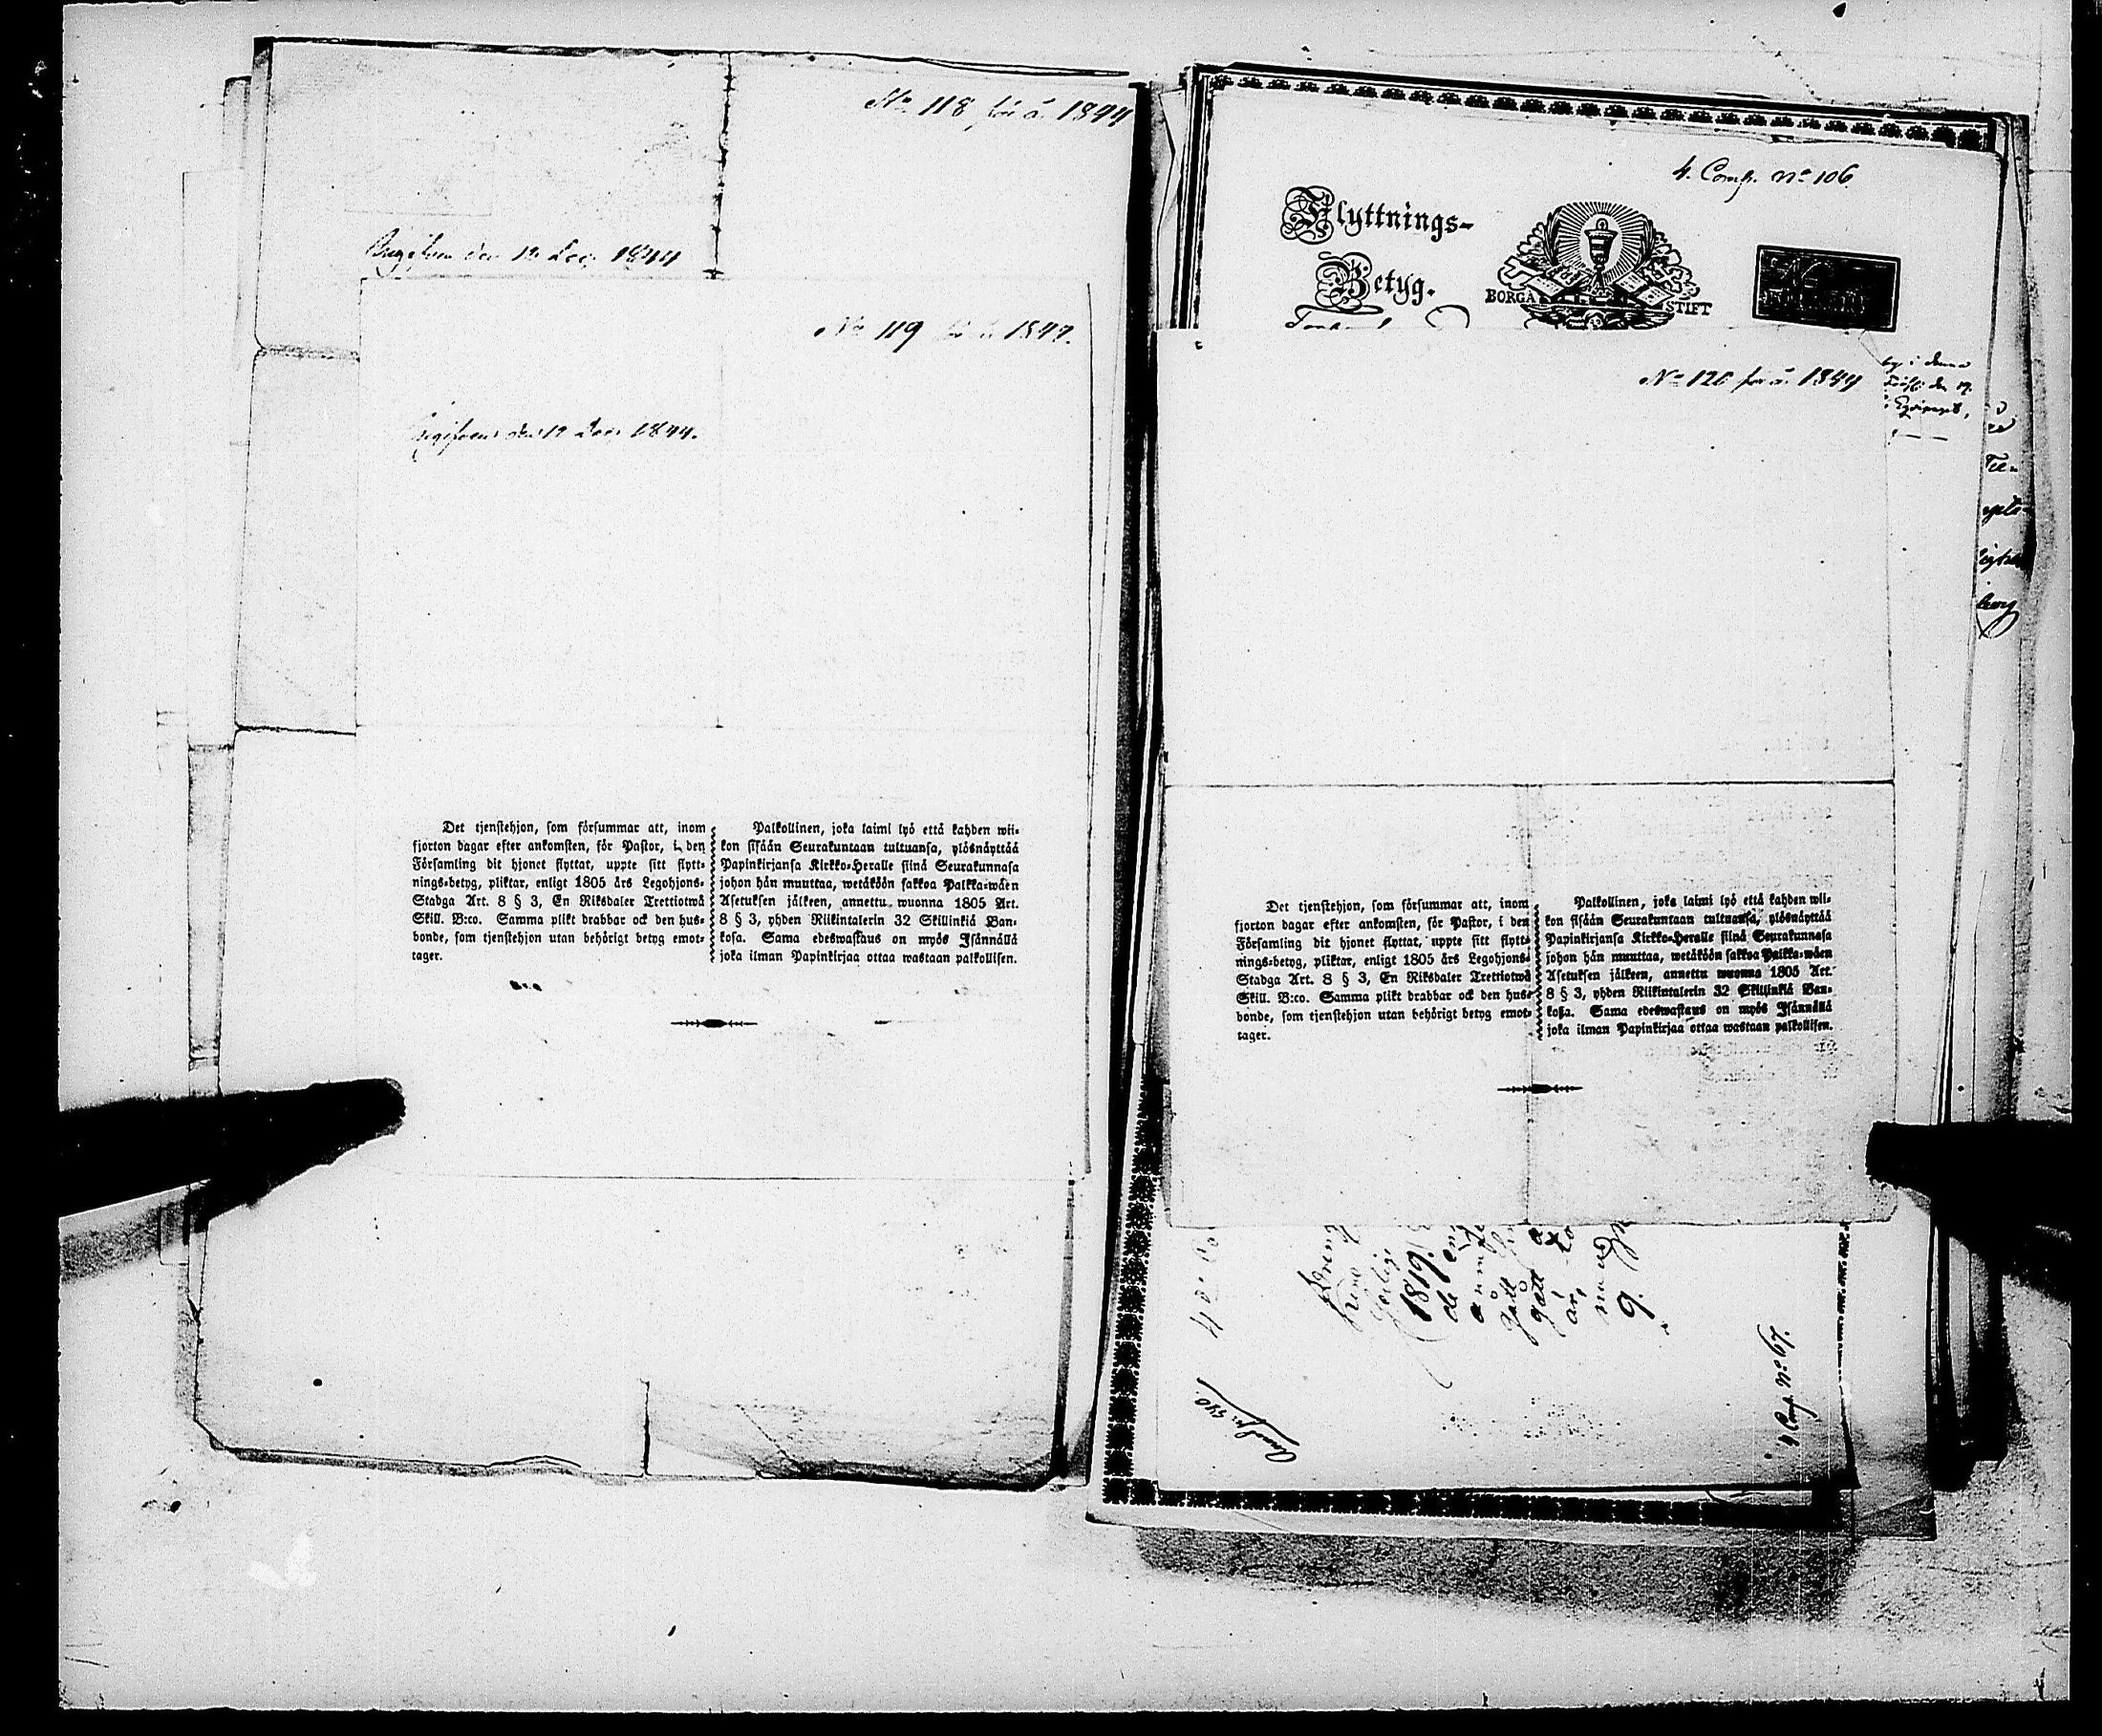 No 118 för å. 1844
den 12 Dec. 1844
No 119 för å. 1844.
den 12 Dec. 1844.
Det tjenstehjon, som försummar att, inom
fjorton dagar efter ankomsten, för Pastor, i den
Församling dit hjonet flyttat, uppte sitt flytt-
nings-betyg, pliktar, enligt 1805 års Legohjons-
Stadga Art. 8 § 3, En Riksdaler Trettiotwå
Skill. B:co. Samma plikt drabbar ock den hus-
bonde, som tjenstehjon utan behörigt betyg emot-
tager.
Palkollinen, joka laimi lyö että kahden wii-
kon sisään Seurakuntaan tultuansa, ylösnäyttää
Papinkirjansa Kirkko-Heralle siinä Seurakunnasa
johon hän muuttaa, wetäköön sakkoa Palkka-wäen
Asetuksen jälkeen, annettu wuonna 1805 Art.
8 § 3, yhden Riikintalerin 32 Skillinkiä Ban-
kosa. Sama edeswastaus on myös Isännällä
joka ilman Papinkirjaa ottaa wastaan palkollisen.
4. Comp. No 106
Flyttnings-
Betyg.
BORGÅ STIFT
No 120 för å. 1844
by i denna
den 19.
Det tjenstehjon, som försummar att, inom
fjorton dagar efter ankomsten, för Pastor, i den
Församling dit hjonet flyttat, uppte sitt flytt-
nings-betyg, pliktar, enligt 1805 års Legohjons-
Stadga Art. 8 § 3, En Riksdaler Trettiotwå
Skill. B:co. Samma plikt drabbar ock den hus-
bonde, som tjenstehjon utan behörigt betyg emot-
tager.
Palkollinen, joka laimi lyö että kahden wii-
kon sisään Seurakuntaan tultuansa, ylösnäyttää
Papinkirjansa Kirkko-Heralle siinä Seurakunnasa
johon hän muuttaa, wetäköön sakkoa Palkka-wäen
Asetuksen jälkeen, annettu wuonna 1805 Art.
8 § 3, yhden Riikintalerin 32 Skillinkiä Ban-
kosa. Sama edeswastaus on myös Isännällä
joka ilman Papinkirjaa ottaa wastaan palkollisen.
1819.
gått
år,
9.
4 Comp. No 67.